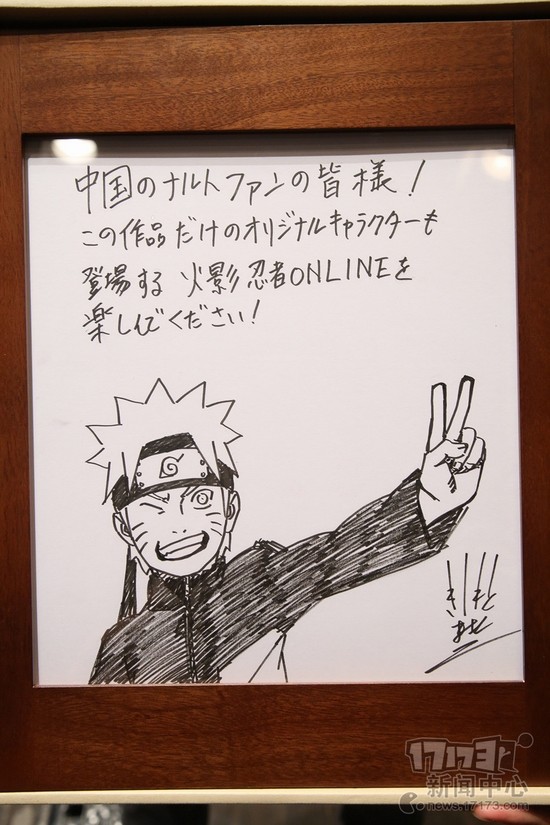 中国のナルトファンの皆様！
この作品だけのオリジナルキャラクターも
登場する 火影忍者ONLINEを
楽しんでください！
17173
新闻中心
news.17173.com